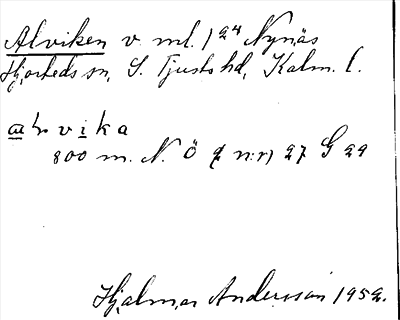 Alviken v. ml. 1 24 Nynäs
Hjorteds sn, S. Tjusts hd, Kalm. l.
vika
800 m. N. Ö nr 27 G 29
Hjalmar Andersson 1952.